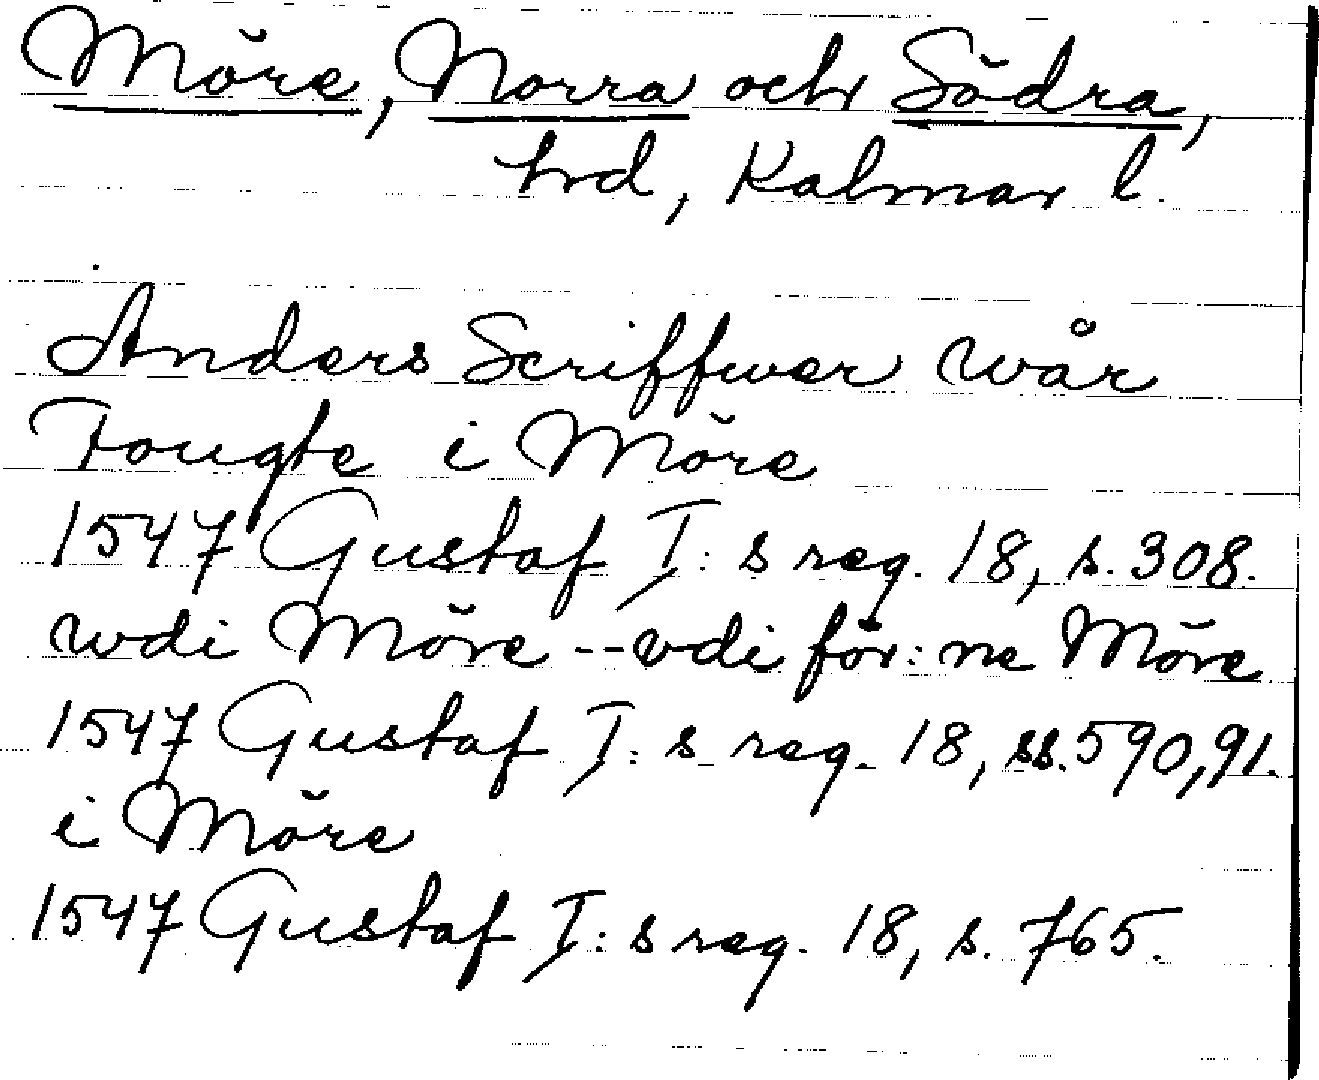 Möre, Norra och Södra,
hrd, Kalmar l.
Anders Scriffwer wår
Fougte i Möre
1547 Gustaf I:s reg. 18, s. 308.
wdi Möre -- vdi för:ne Möre
1547 Gustaf I:s reg. 18, ss. 590, 91.
i Möre
1547 Gustaf I:s reg. 18, s. 765.